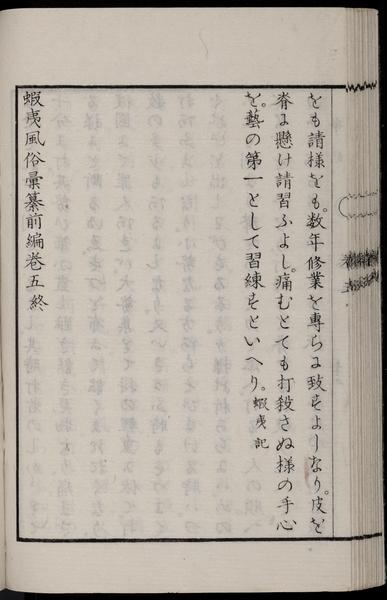 をも請様をも。数年修業を専らに致すよしなり。皮を
脊に懸け請習ふよし。痛むとても打殺さぬ様の手心
を。藝の第一として習練すといへり。蝦夷記
蝦夷風俗彙纂前編巻五終